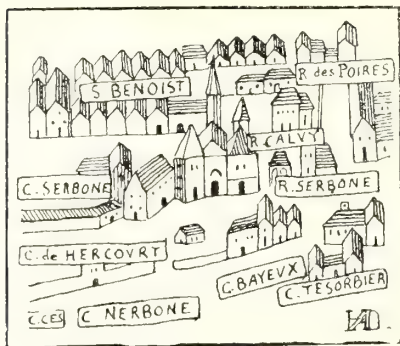 S. BENOIST
R. des POIRES
R. CALVY
C. SERBONE
R. SERBONE
C. de HERCOVRT
C. BAYEVX
C. TESORBIER
C. CES
C NERBONE